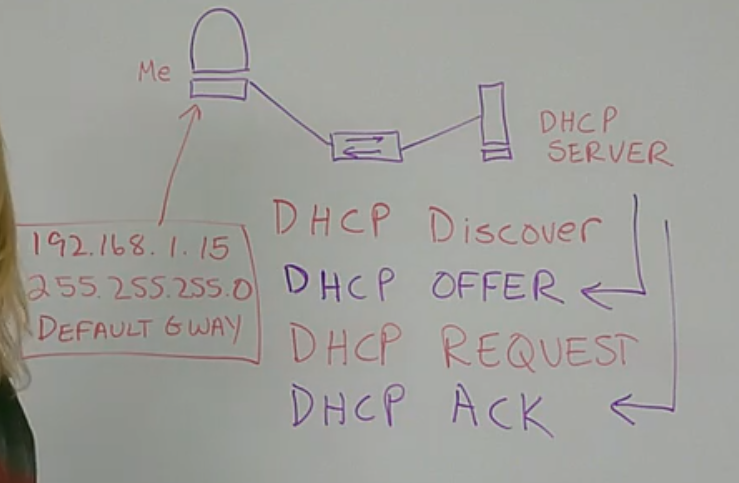 Me
DHCP
SERVER
192.168.1.15
255.255.255.0
DEFAULT GWAY
DHCP Discover
DHCP OFFER
DHCP REQUEST
DHCP ACK